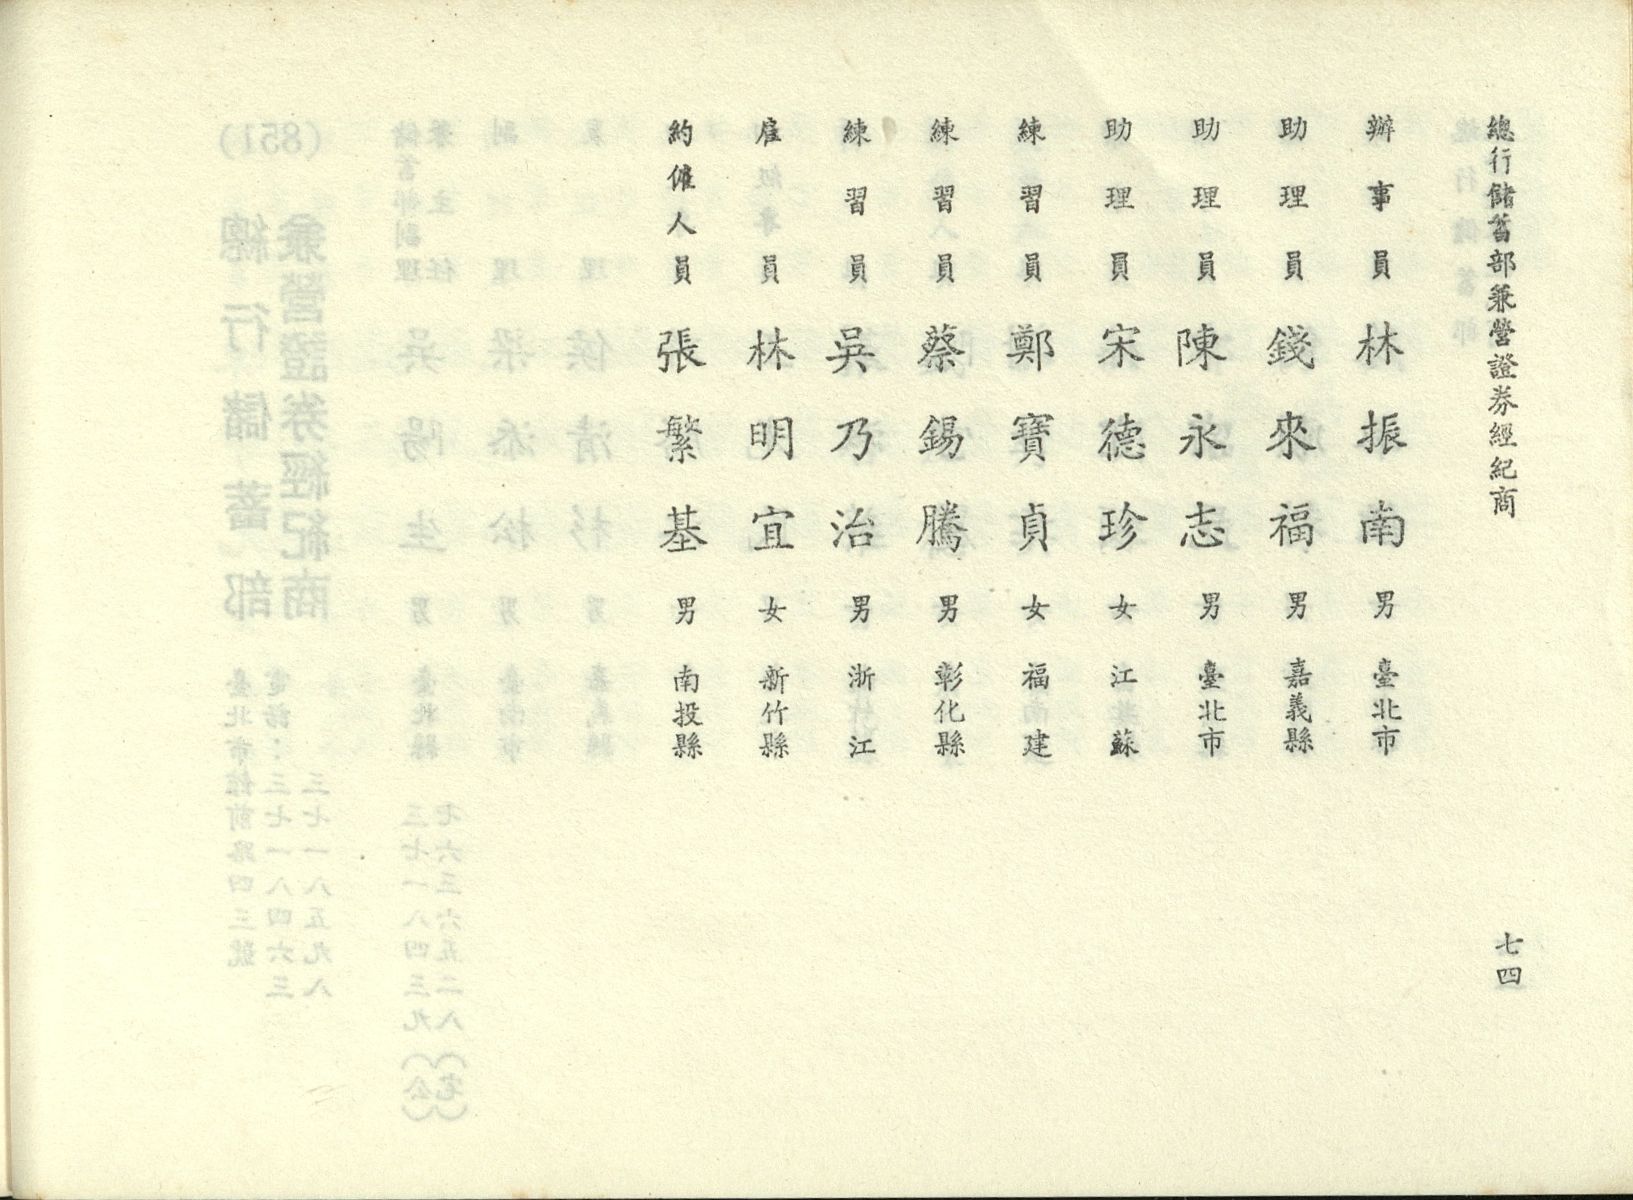 總行儲蓄部兼營證券經紀商
七四
辦事員 林振南 男 臺北市
助理員 錢來福 男 嘉義縣
助理員 陳永志 男 臺北市
助理員 宋德珍 女 江蘇
練習員 鄭寶貞 女 福建
練習員 蔡錫騰 男 彰化縣
練習員 吳乃治 男 浙江
雇員 林明宜 女 新竹縣
約僱人員 張繁基 男 南投縣